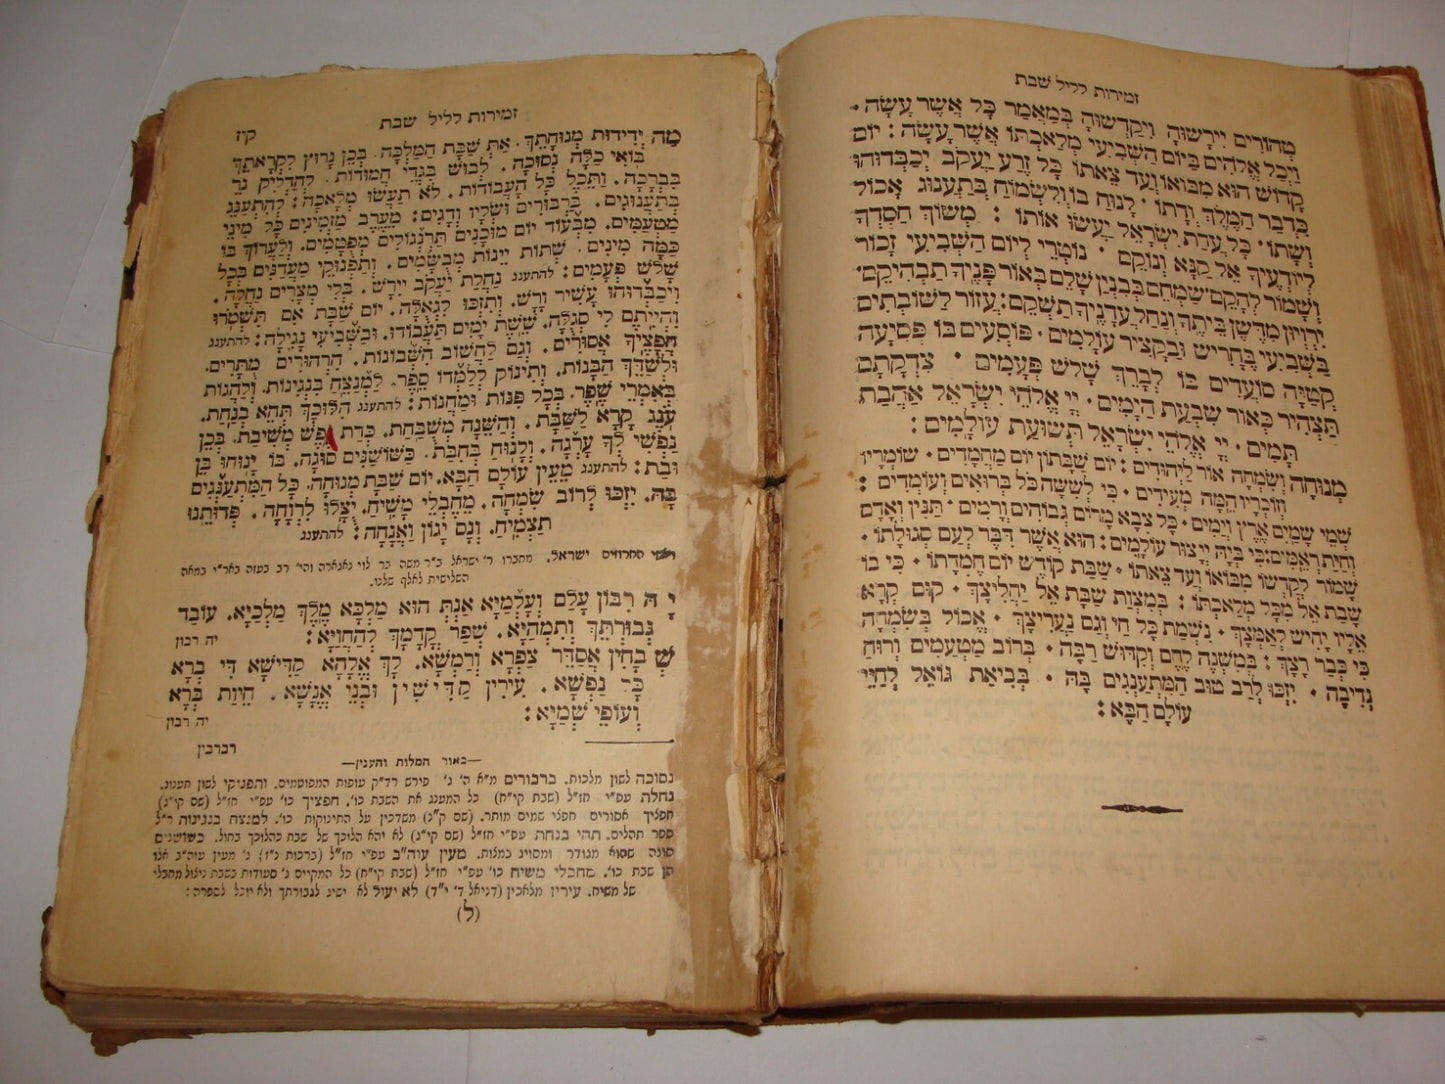 זמירות לליל שבת
מהורים יירשוה ויקדשוה במאמר כל אשר עשה.
ויכל אלהים ביום השביעי מלאכתו אשר עשה: יום
קדוש הוא מבואו ועד צאתו כל זרע יעקב יכבדוהו
כדבר המלך ודתו. לנוח בו ולשמוח בתענוג אכול
ושתו. כל עדת ישראל יעשו אותו: משוך חסדך
ליודעיך אל קנא ונוקם. נוטרי ליום השביעי זכור
ושמור להקם. שמחם בבנין שלם באור פניך תבהיקם.
ירויון מדשן ביתך ונחל עדניך תשקם: עזור לשובתים
בשביעי בחריש ובקציר עולמים. פוסעים בו פסיעה
קטנה סועדים בו לברך שלש פעמים. צדקתם
תצהיר כאור שבעת הימים. יי אלהי ישראל אהבת
תמים. יי אלהי ישראל תשועת עולמים:
מנוחה ושמחה אור ליהודים: יום שבתון יום מחמדים. שומריו
וזוכריו המה מעידים. כי לששה כל ברואים ועומדים:
שמי שמים ארץ וימים. כל צבא מרום גבוהים ורמים. תנין ואדם
וחית ראמים: כי ביה יי צור עולמים: הוא אשר דבר לעם סגולתו.
שמור לקדשו מבואו ועד צאתו. שבת קודש יום חמדתו. כי בו
שבת אל מכל מלאכתו: במצות שבת אל יחליצך. קום קרא
אליו יחיש לאמצך. נשמת כל חי וגם נעריצך. אכול בשמחה
כי כבר רצך: במשנה לחם וקדוש רבה. ברוב מטעמים ורוח
נדיבה. יזכו לרב טוב המתענגים בה. בביאת גואל לחיי
עולם הבא:
זמירות לליל שבת
קיז
מה ידידות מנוחתך. את שבת המלכה. בכן נרוץ לקראתך
בואי כלה נסוכה. לבוש בגדי חמודות. להדליק נר
בברכה. ותכל כל העבודות. לא תעשו מלאכה: להתענג
בתענוגים. ברבורים ושליו ודגים: מערב מזמינים כל מיני
מטעמים. מבעוד יום מוכנים תרנגולים מפטמים. ולערוך בו
כמה מינים. שתות יינות מבשמים. ותפנוקי מעדנים בכל
שלש פעמים: להתענג נחלת יעקב יירש. בלי מצרים נחלה.
ויכבדוהו עשיר ורש. ותזכו לגאלה. יום שבת אם תשמרו
והייתם לי סגלה. ששת ימים תעבודו. ובשביעי נגילה: להתענג
חפציך אסורים. וגם לחשוב חשבונות. הרהורים מתרים.
ולשדך הבנות. ותינוק ללמדו ספר. למנצח בנגינות. ולהגות
באמרי שפר. בכל פנות ומחנות: להתענג הלוכך תהא בנחת.
ענג קרא לשבת. והשנה משבחת. כדת נפש משיבת. בכן
נפשי לך ערגה. ולנוח בחבת. כשושנים סוגה. בו ינוחו בן
ובת: להתענג מעין עולם הבא. יום שבת מנוחה. כל המתענגים
בה. יזכו לרוב שמחה. מחבלי משיח. יצלו לרוחה. פדותנו
תצמיח. ונס יגון ואנחה: להתענג
ראשי החרוזים ישראל. מחברו ר' ישראל ב"ר משה בר לוי נאגארה והי' רב בעזה באר"י במאה
השלישית לאלף שלנו.
יה רבון עלם ועלמיא אנת הוא מלכא מלך מלכיא. עובד
גבורתך ותמהיא. שפר קדמך להחויא: יה רבון
שבחין אסדר צפרא ורמשא. לך אלהא קדישא די ברא
כל נפשא. עירין קדישין ובני אנשא. חיות ברא
ועופי שמיא: יה רבון
רברבין
—באור המלות והענין—
נסוכה לשון מלכות. ברבורים מ"א ה' ג' פירש רד"ק עופות המפוטמים. ותפנוקי לשון תענוג.
נחלת עפ"י חז"ל (שבת קי"ח) כל המענג את השבת כו'. חפציך כו' עפ"י חז"ל (שם קי"ג)
חפליך אסורים חפלי שמים מותר. (שם ק"נ) משדכין על התינוקות כו'. למנצח בנגינות ר"ל
ספר תהלים. תהי בנחת עפ"י חז"ל (שם קי"ג) לא יהא הלוכך של שבת כהלוכך בחול. כשושנים
סוגה שהוא מגודר ומסויג במלות. מעין עוה"ב עפ"י חז"ל (ברכות נ"ז) ג' מעין עוה"ב אלו
הן שבת כו'. מחבלי משיח כו' עפ"י חז"ל (שבת קי"ח) כל המקיים ג' סעודות בשבת ניצול מחבלי
של משיח. עירין מלאכין (דניאל ד' י"ד) לא יעול לא ישיג לגבורתך ולא יוכל לספרה:
(ל)